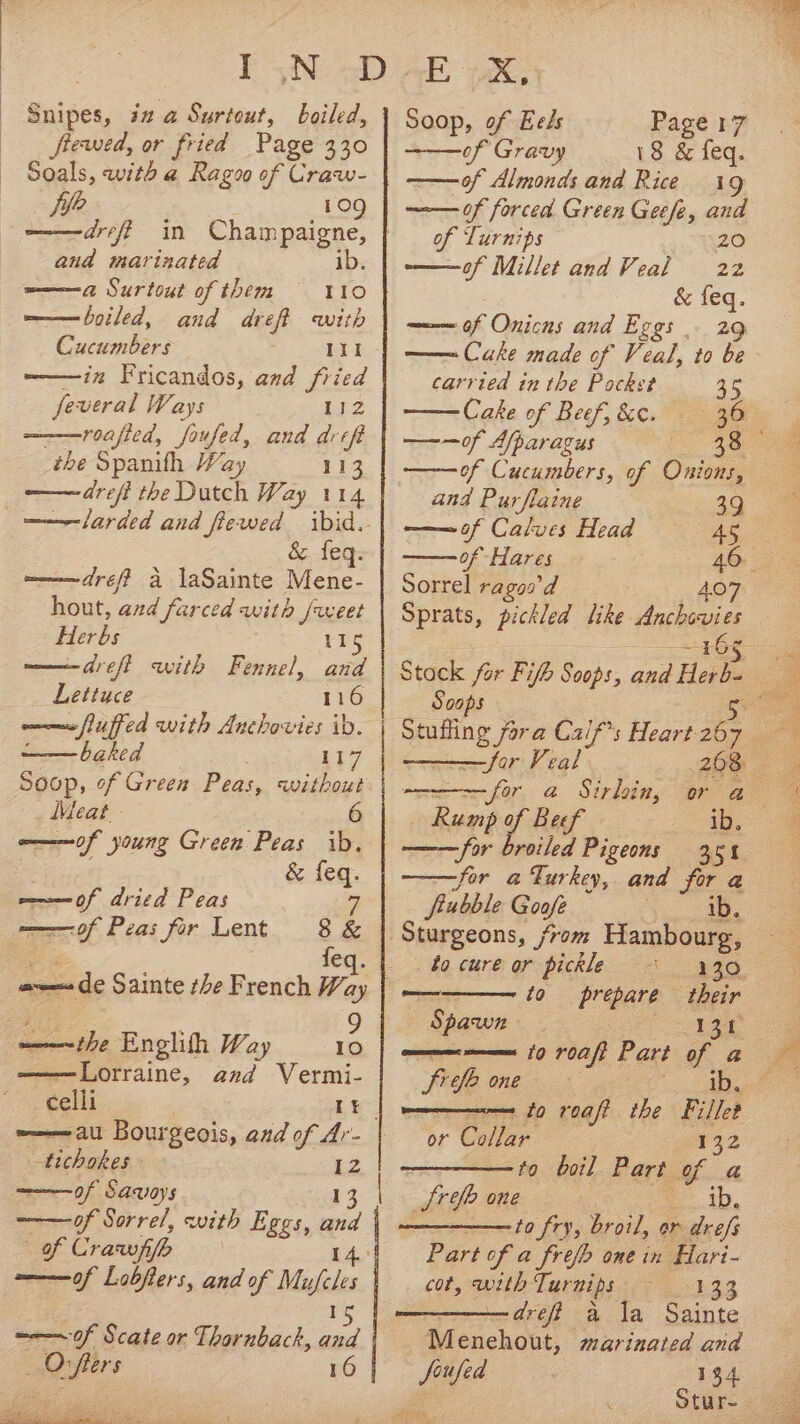 INDEX.
Snipes, in a Surtout, boiled,
ſtewed, or fried Page 330
Soals, with a Ragoo of Craw-
fiſh 109
——dreſt in Champaigne,
and marinated ib.
——a Surtout of them 110
——boiled, and dreſt with
Cucumbers 111
——in Fricandos, and fried
ſeveral Ways 112
——roaſted, ſouſed, and dreſt
the Spaniſh Way 113
——dreſt the Dutch Way 114
——larded and ſtewed ibid.
& ſeq.
——dreſt à la Sainte Mene-
hout, and farced with ſweet
Herbs 115
——dreſt with Fennel, and
Lettuce 116
——ſtuffed with Anchovies ib.
——baked 117
Soop, of Green Peas, without
Meat 6
——of young Green Peas ib.
& ſeq.
——of dried Peas 7
——of Peas for Lent 8 &
ſeq.
——de Sainte the French Way
9
——the Engliſh Way 10
——Lorraine, and Vermi-
celli 11
——au Bourgeois, and of Ar-
tichokes 12
——of Savoys 13
——of Sorrel, with Eggs, and
of Crawfiſh 14
——of Lobſters, and of Muſcles
15
——of Scate or Thornback, and
Oyſters 16
Soop, of Eels Page 17
——of Gravy 18 & ſeq.
——of Almonds and Rice 19
——of forced Green Geeſe, and
of Turnips 20
——of Millet and Veal 22
& ſeq.
——of Onions and Eggs 29
——Cake made of Veal, to be
carried in the Pocket 35
——Cake of Beef, &c. 36
——of Aſparagus 38
——of Cucumbers, of Onions,
and Purſlaine 39
——of Calves Head 45
——of Hares 46
Sorrel ragoo'd 407
Sprats, pickled like Anchovies
165
Stock for Fiſh Soops, and Herb-
Soops 5
Stuffing for a Calf's Heart 267
———for Veal 268
———for a Sirloin, or a
Rump of Beef ib.
——for broiled Pigeons 351
——for a Turkey, and for a
ſtubble Gooſe ib.
Sturgeons, from Hambourg,
to cure or pickle 130
———to prepare their
Spawn 131
———to roaſt Part of a
freſh one ib.
———to roaſt the Fillet
or Collar 132
———to boil Part of a
freſh one ib.
———to fry, broil, or dreſs
Part of a freſh one in Hari-
cot, with Turnips 133
———dreſt à la Sainte
Menehout, marinated and
ſouſed 134
Stur-